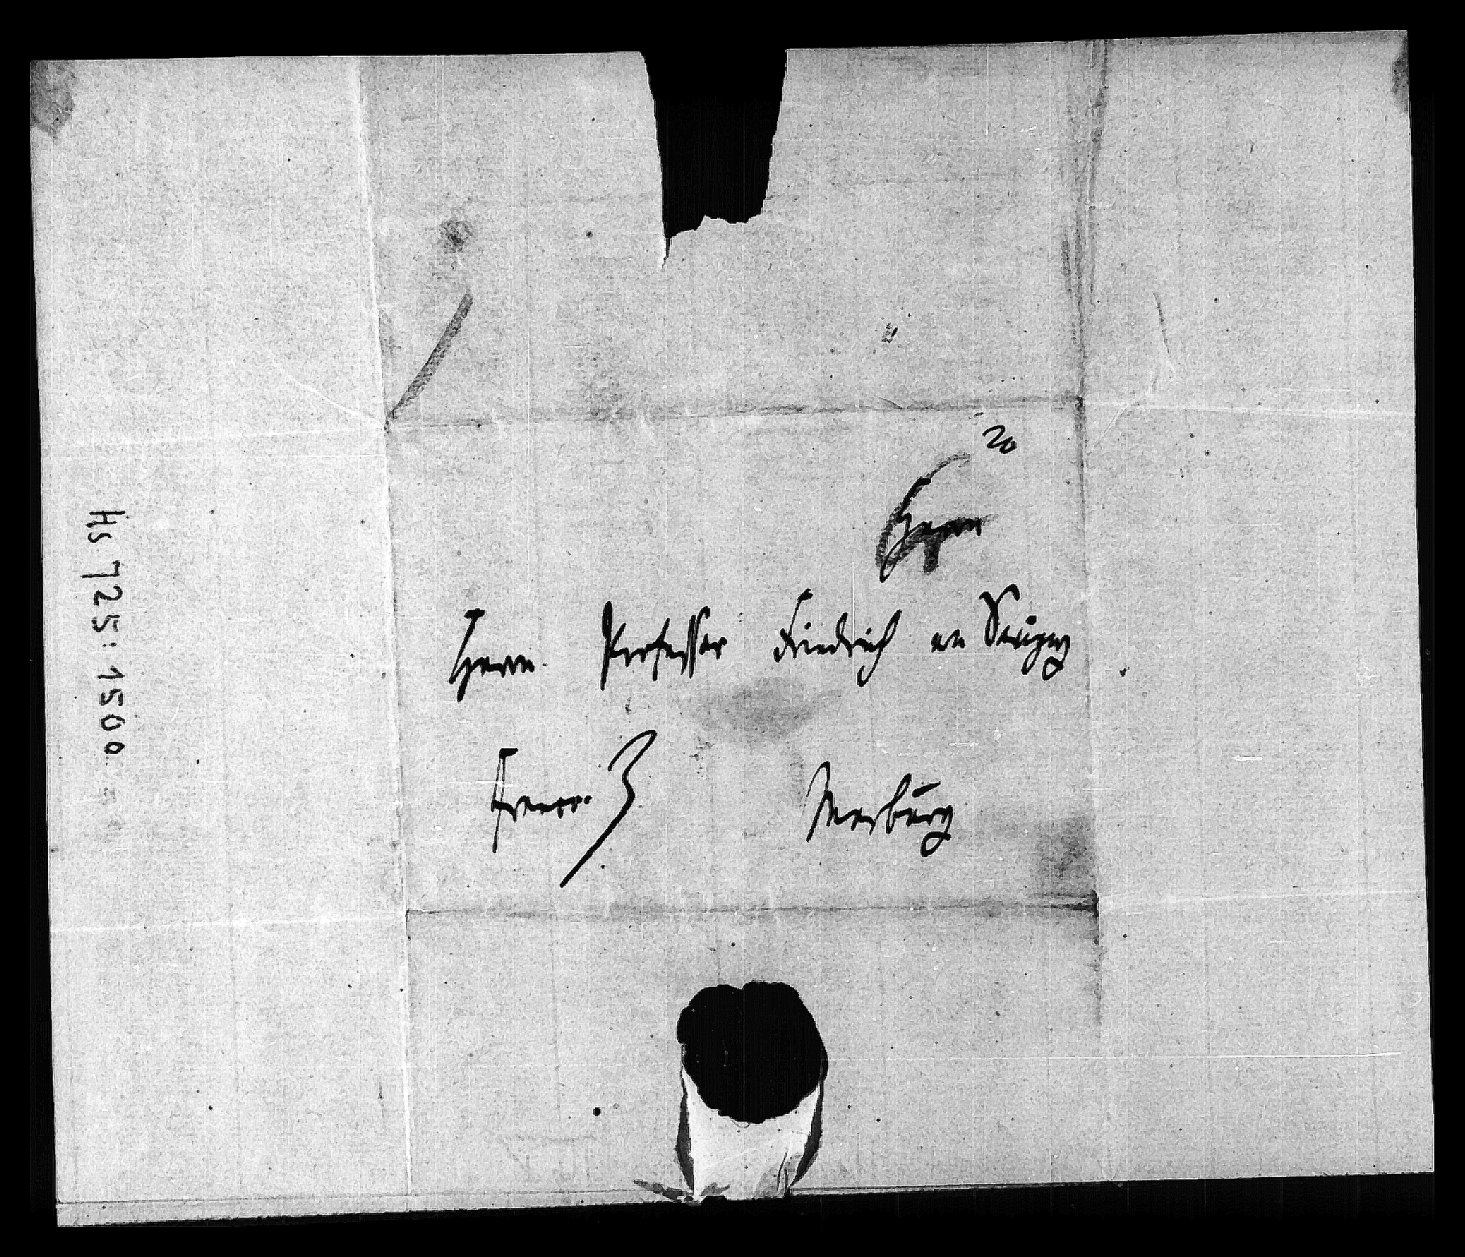 20
Herrn
Herrn Professor Friedrich von Savigny
Franco Marburg
Hs 725: 1500